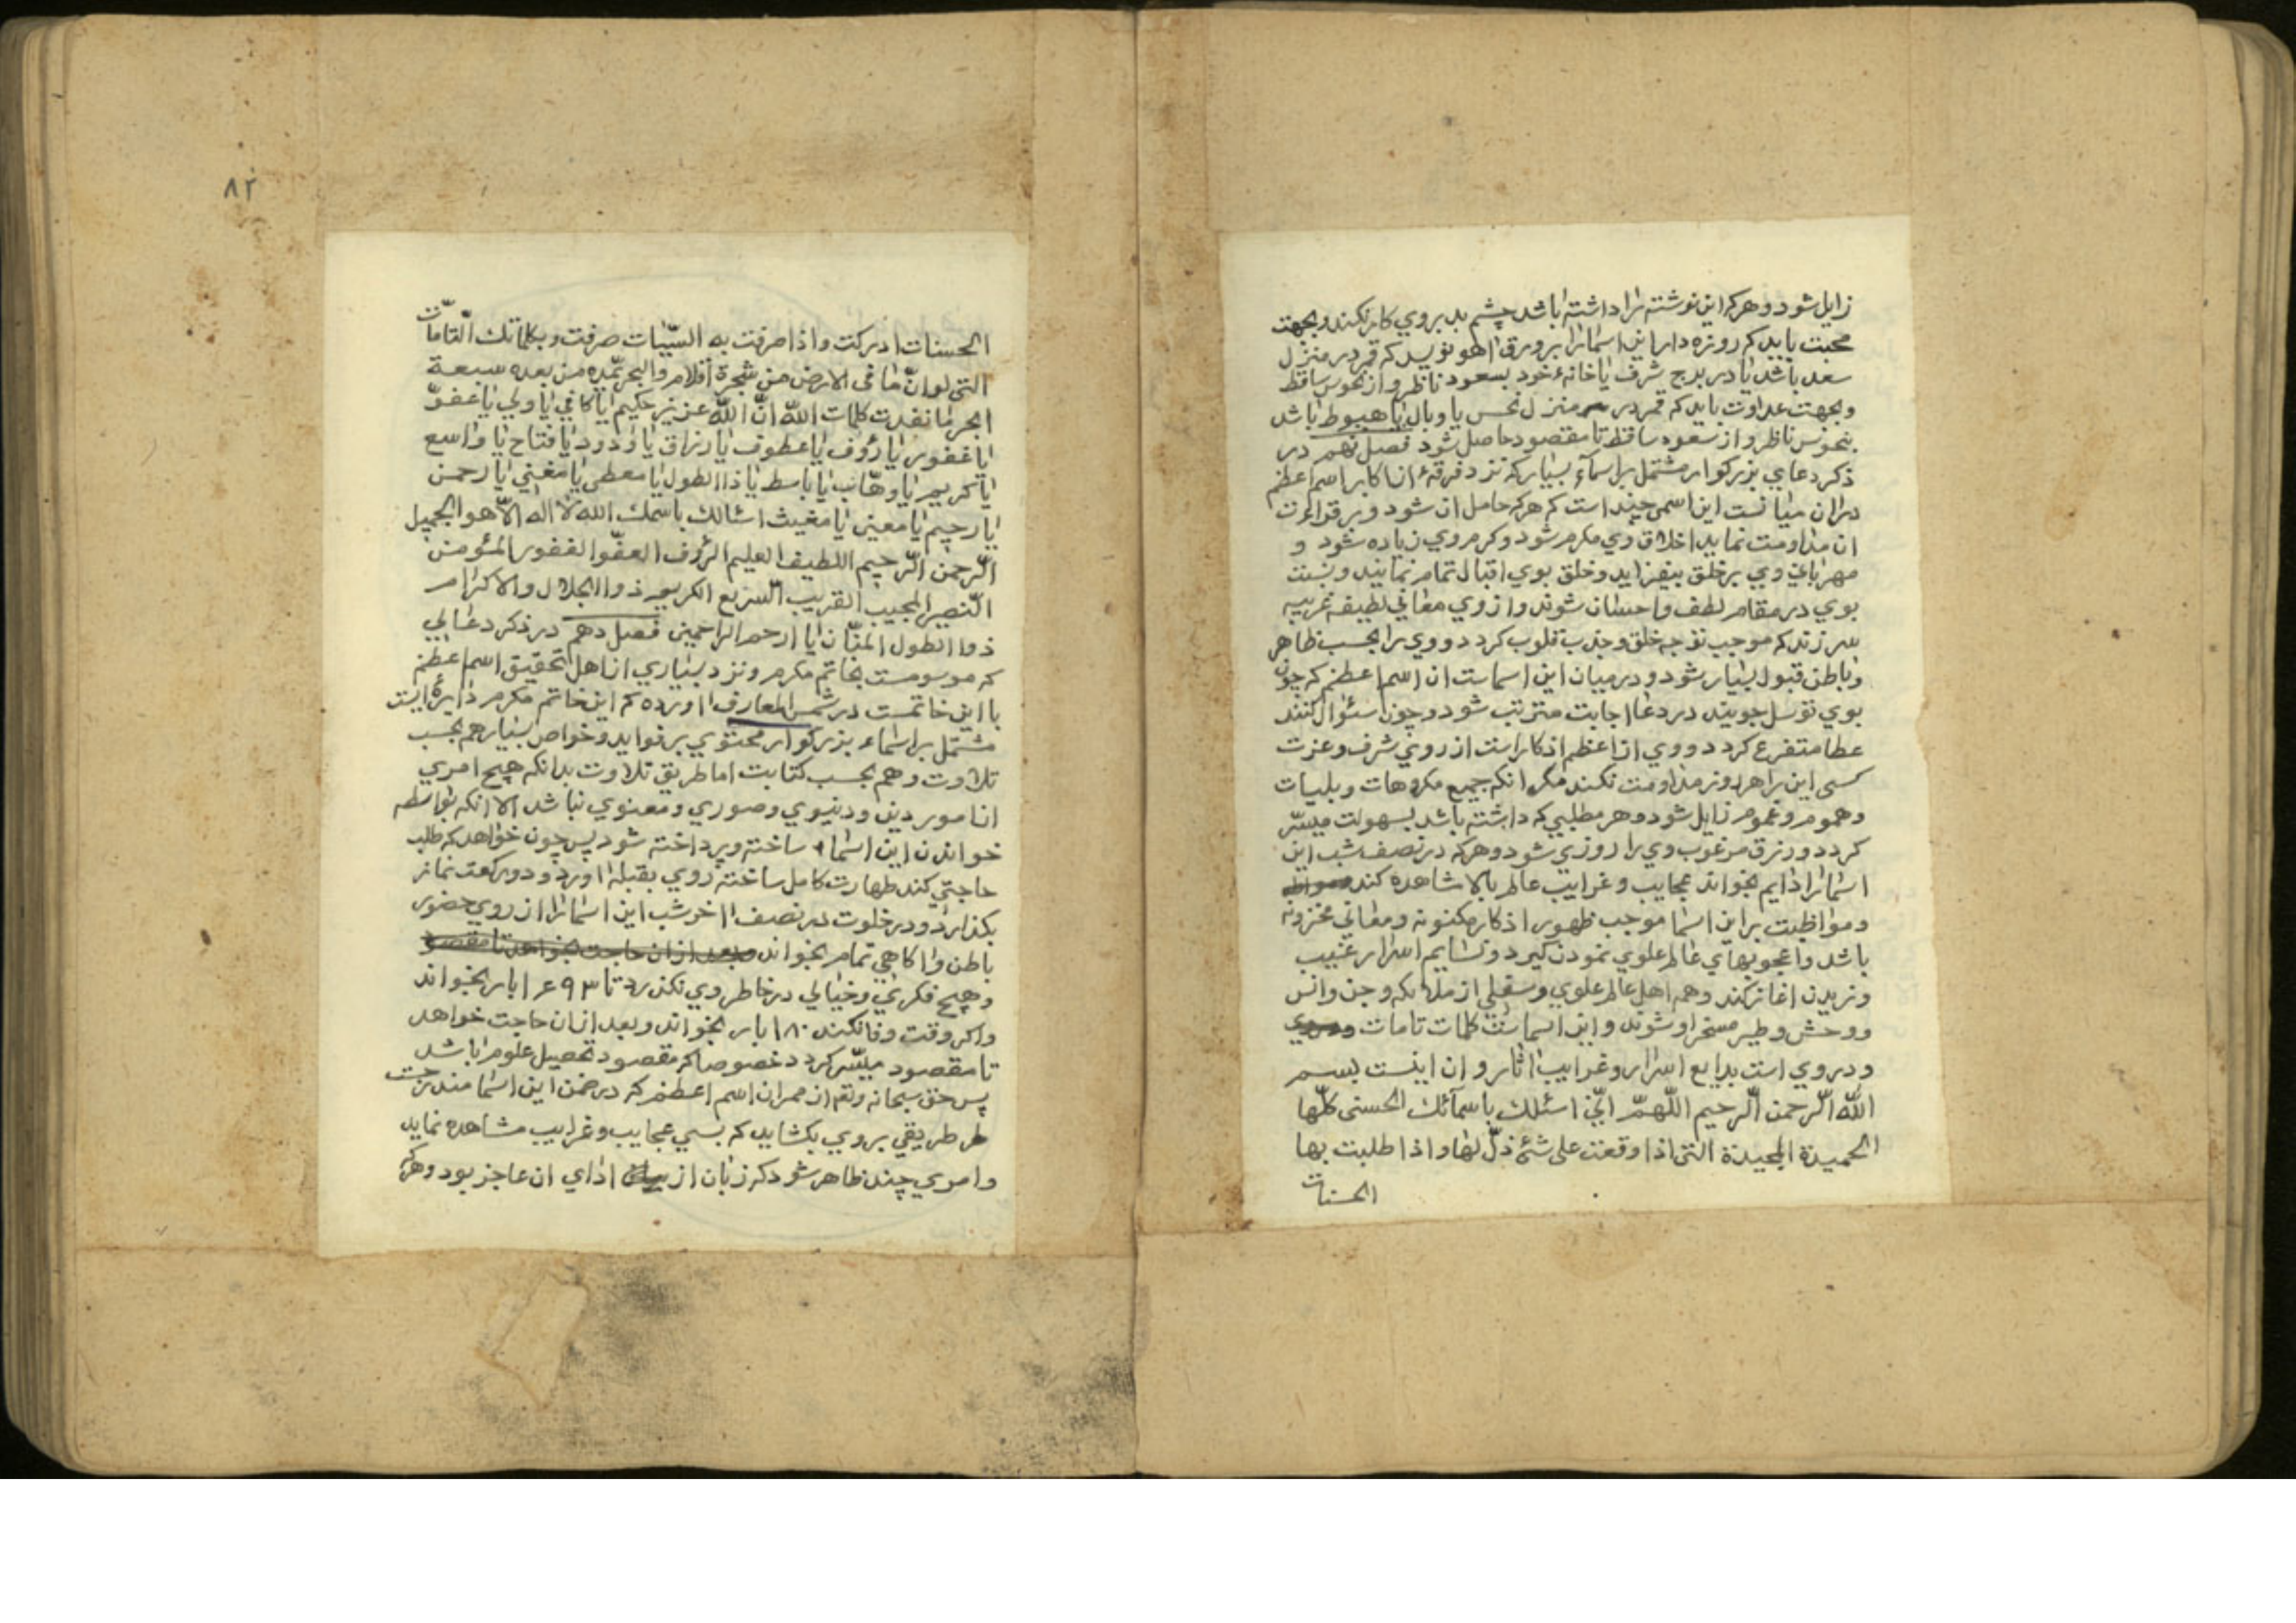 زایل شود و هرکه این نوشته را داشته باشد چشم بد بروی کار نکند و بجهت
محبت باید که روزه دار این اسما را بر ورق اهو نویسد که قمر در منزل
سعد باشد یا در برج شرف یا خانهٔ خود بسعود ناظر و از نحوس ساقط
و بجهت عداوت باید که قمر در منزل نحس یا وبال یا هبوط باشد
بنحوس ناظر و از سعود ساقط تا مقصود حاصل شود فصل نهم در
ذکر دعای بزرکوار مشتمل بر اسمآء بسیار که نزد فرقهٔ از اکابر اسم اعظم
در ان میانست این اسمی چند است که هرکه حامل ان شود و بر قراءت
ان مداومت نماید اخلاق وی مکرم شود و کرم وی زیاده شود و
مهربانی وی بر خلق بیفزاید و خلق بوی اقبال تمام نمایند و نسبت
بوی در مقام لطف و احسان شوند و از وی معانی لطیفه غریبه
سر زند که موجب توجه خلق و جذب قلوب کردد و وی را بحسب ظاهر
و باطن قبول بسیار شود و در میان این اسماست ان اسم اعظم که چون
بوی توسل جویند در دعا اجابت مترتب شود و چون سئوال کنند
عطا متفرع کردد و وی از اعظم اذکار است از روی شرف و عزت
کسی این را هر روز مداومت نکند مکر انکه جمیع مکروهات و بلیات
و هموم و غموم زایل شود و هر مطلبی که داشته باشد بسهولت میسّر
کردد و رزق مرغوب وی را روزی شود و هرکه در نصف شب این
اسما را دایم بخواند عجایب و غرایب عالم بالا مشاهده کند
و مواظبت بر این اسما موجب ظهور اذکار مکنونه و معانی مخزونه
باشد و اعجوبهای عالم علوی نمودن کیرد و نسایم اسرار غیب
وزیدن اغاز کند و همه اهل عالم علوی و سفلی از ملایکه و جن و انس
و وحش و طیر مسخر او شوند و این اسمائت کلمات تامات
و در وی است بدایع اسرار و غرایب اثار و ان اینست بسم
الله الرّحمن الرّحیم اللّهمّ انّی اسئلک باسمآئک الحسنی کلّها
الحمیدة المجیدة التی اذا وقعت علی شئ ذلّ لها و اذا طلبت بها
الحسنات
٨٢
الحسنات ادرکت و اذا صرفت به السّیّات صرفت و بکلماتک التّامات
التی لو انّ ما فی الارض من شجرة اقلام و البحر یمّده من بعده سبعة
ابحر ما نفدت کلمات اللّه انّ اللّه عزیز حکیم یا کافی یا ولی یا غفوّ
یا غفور یا رؤف یا عطوف یا رزاق یا ودود یا فتاح یا واسع
یا کریم یا وهّاب یا باسط یا ذا الطول یا معطی یا مغنی یا رحمن
یا رحیم یا معین یا مغیث اسئالک باسمک الله لا اله الّا هو الجمیل
الرّحمن الرّحیم اللطیف العلیم الرؤف العفّو الغفور المئومن
النّصیر المجیب القریب السّریع الکریم ذوا الجلال والاکرام
ذوا الطول المنّان یا ارحم الراحمین فصل دهم در ذکر دعائی
که موسومست بخاتم مکرم و نزد بسیاری از اهل تحقیق اسم اعظم
با این خاتمست در شمس المعارف اورده که این خاتم مکرم دایرهٔ ایست
مشتمل بر اسماء بزرکوار محتوی بر فواید و خواص بسیار هم بحسب
تلاوت و هم بحسب کتابت اما طریق تلاوت بدانکه هیچ امری
از امور دین و دنیوی و صوری و معنوی نباشد الا انکه بواسطه
خواندن این اسماء ساخته و پرداخته شود پس چون خواهد که طلب
حاجتی کند طهارت کامل ساخته روی بقبله اورد و دو رکعت نماز
بکذارد و در خلوت در نصف اخر شب این اسما را از روی حضور
باطن و اکاهی تمام بخواند و بعد از ان حاجت بخواهد تا مقصود
و هیچ فکری و خیالی در خاطر وی نکذرد تا بار بخواند
و اکر وقت وفا نکند ١٨٠ بار بخواند و بعد از ان حاجت خواهد
تا مقصود میسّر کردد خصوصا کر مقصود تحصیل علوم باشد
پس حق سبحانه و تعم از ممر ان اسم اعظم که در ضمن این اسما مندرجست
هر طریقی بر وی بکشاید که بسی عجایب و غرایب مشاهده نماید
و اموری چند ظاهر شود که زبان از ادای ان عاجز بود و هرکه